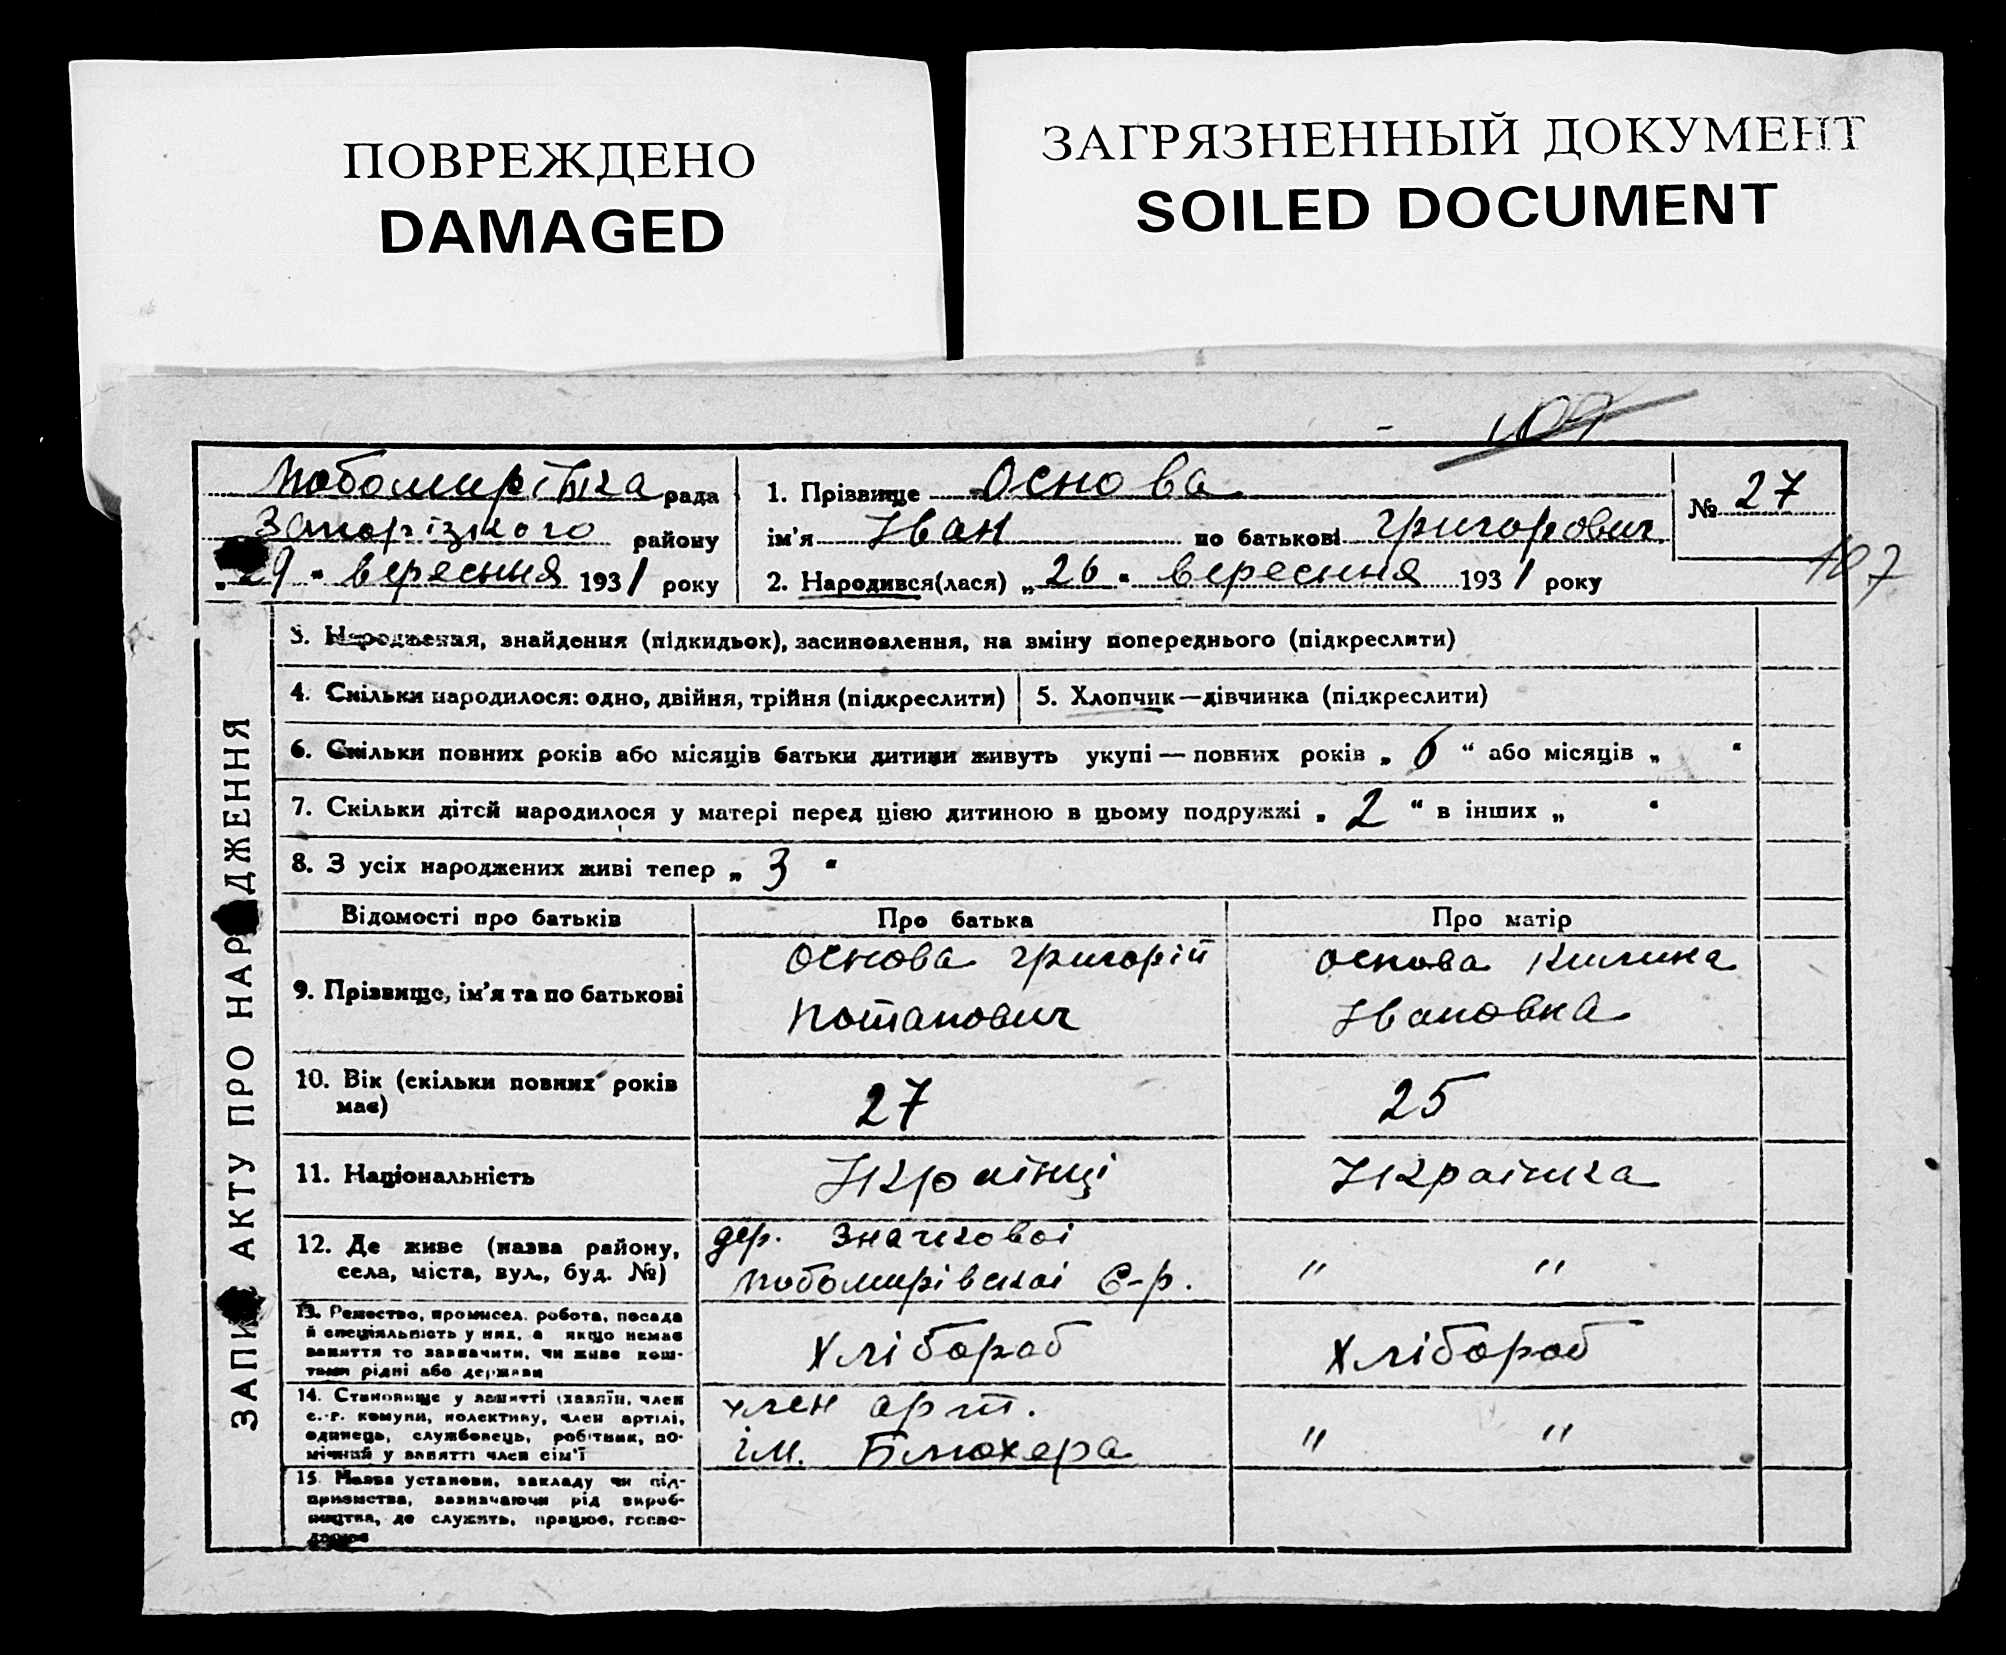 ПОВРЕЖДЕНО
DAMAGED
ЗАГРЯЗНЕННЫЙ ДОКУМЕНТ
SOILED DOCUMENT
109
Побомирівка рада
Запорізкого району
„29“ вересния 1931 року
1. Прізвище Основа
ім'я Іван по батькові Григорович
2. Народився(лася) „26“ вересния 1931 року
№ 27
107
ЗАПИС АКТУ ПРО НАРОДЖЕННЯ
3. Народження, знайдення (підкидьок), засиновлення, на зміну попереднього (підкреслити)
4. Скільки народилося: одно, двійня, трійня (підкреслити)
5. Хлопчик—дівчинка (підкреслити)
6. Скільки повних років або місяців батьки дитини живуть укупі — повних років „6“ або місяців „ “
7. Скільки дітей народилося у матері перед цією дитиною в цьому подружжі „2“ в інших „ “
8. З усіх народжених живі тепер „3“
Відомості про батьків Про батька Про матір
9. Прізвище, ім'я та по батькові
Основа Григорій
Потапович
Основа Килина
Івановна
10. Вік (скільки повних років
має)
27
25
11. Національність
Українці
Українка
12. Де живе (назва району,
села, міста, вул., буд. №)
дер. Значкової
Побомирівскої С-р.
" "
13. Ремество, промисел, робота, посада
й спеціяльність у них, а якщо немає
заняття то зазначити, чи живе кош-
тами рідні або держави
Хлібороб
Хлібороб
14. Становище у занятті (хазяїн, член
с.-г. комуни, колективу, член артілі,
одинець, службовець, робітник, по-
мічний у занятті член сім'ї
член арт.
ім. Блюхера
" "
15. Назва установи, закладу чи під-
приємства, зазначаючи рід вироб-
ництва, де служить, працює, госпо-
дарює